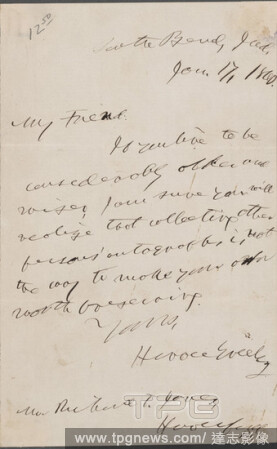 12.50
South Bend, Ind.
Jan. 17, 1860.
My Friend:
If you live to be
considerably older and
wiser, I am sure you will
realize that collecting other
persons' autographs is not
the way to make your own
worth preserving.
Yours,
Horace Greeley
Mr. Richard
TPG
www.tpgnews.com/達志影像